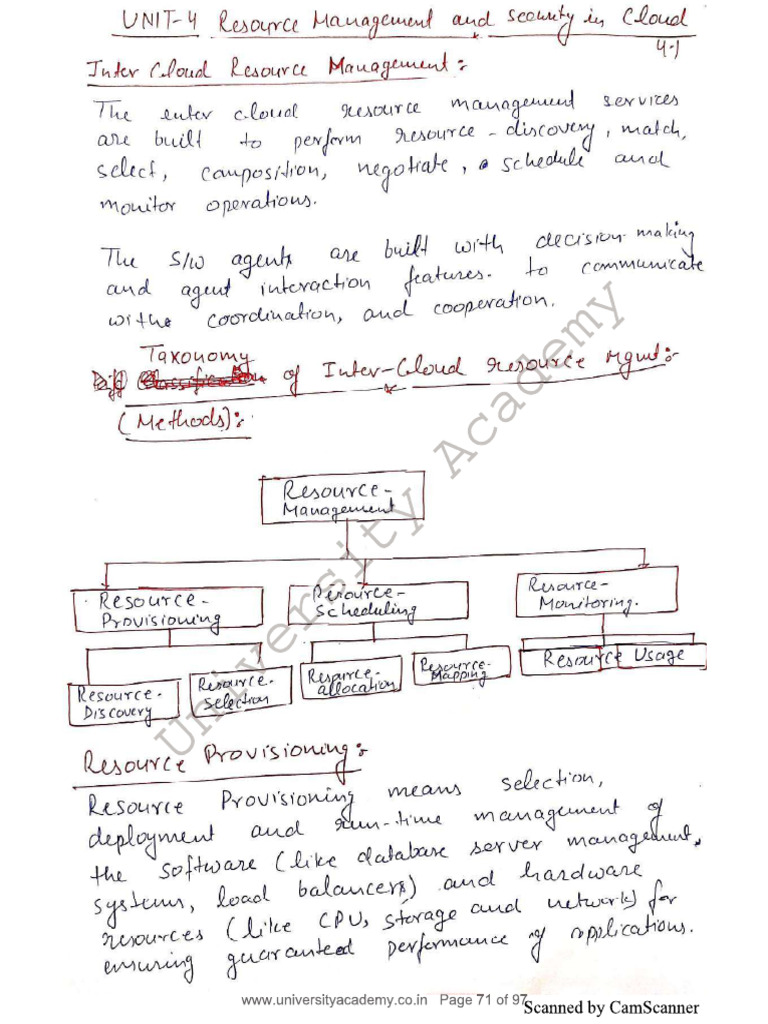 UNIT-4 Resource Management and security in Cloud
4.1
Inter Cloud Resource Management:
The enter cloud resource management services
are built to perform resource-discovery, match,
select, composition, negotiate, schedule and
monitor operations.
The S/W agents are built with decision-making
and agent interaction features. to communicate
withe coordination, and cooperation.
Taxonomy
of Inter-Cloud resource Mgmt:-
(Methods):
Resource-
Management
Resource-
Provisioning
Resource-
Scheduling
Resource-
Monitoring.
Resource-
Discovery
Resource-
Selection
Resource-
allocation
Resource-
Mapping
Resource Usage
Resource Provisioning:
Resource Provisioning means selection,
deployment and run-time management of
the software (like database server management
systems, load balancers) and hardware
resources (like CPU, storage and network) for
ensuring guaranteed performance of applications.
University Academy
www.universityacademy.co.in Page 71 of 97
Scanned by CamScanner